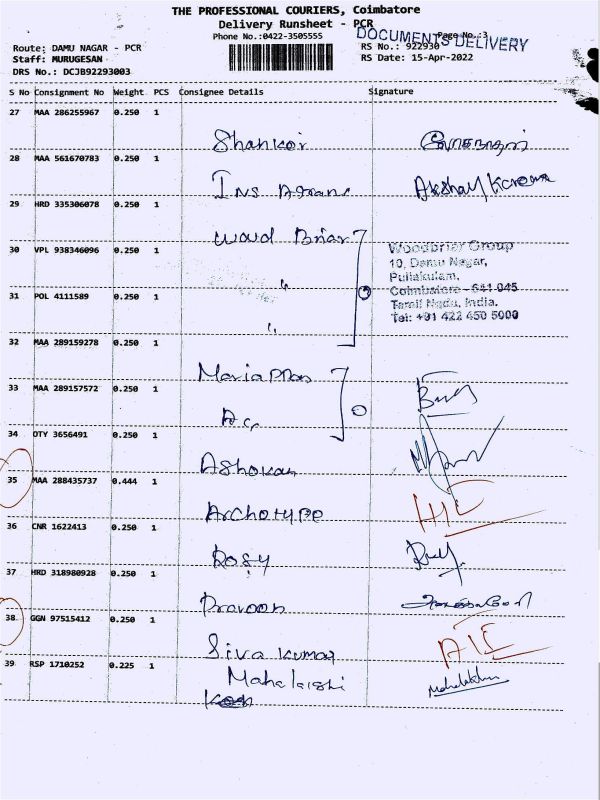 THE PROFESSIONAL COURIERS, Coimbatore
Delivery Runsheet - PCR
Phone No.:0422-3505555
Page No.:3
DOCUMENTS DELIVERY
Route: DAMU NAGAR - PCR
RS No.: 922930
Staff: MURUGESAN
RS Date: 15-Apr-2022
DRS No.: DCJB92293003
S No Consignment No Weight PCS Consignee Details Signature
27 MAA 286255967 0.250 1
Shankar
28 MAA 561670783 0.250 1
Ins Akshay Karena
29 HRD 335306078 0.250 1
Woud Briar
30 VPL 938346096 0.250 1
"
Woodbrier Group
10, Damu Nagar,
Puliakulam,
31 POL 4111589 0.250 1
"
Coimbatore - 641 045
Tamil Nadu, India.
Tel: +91 422 450 5000
32 MAA 289159278 0.250 1
33 MAA 289157572 0.250 1
34 OTY 3656491 0.250 1
Ashokan
35 MAA 288435737 0.444 1
Archotype H/E
36 CNR 1622413 0.250 1
Rosy
37 HRD 318980928 0.250 1
Pravoon
38 GGN 97515412 0.250 1
Siva Kumar
39 RSP 1710252 0.225 1
Mahalaishi